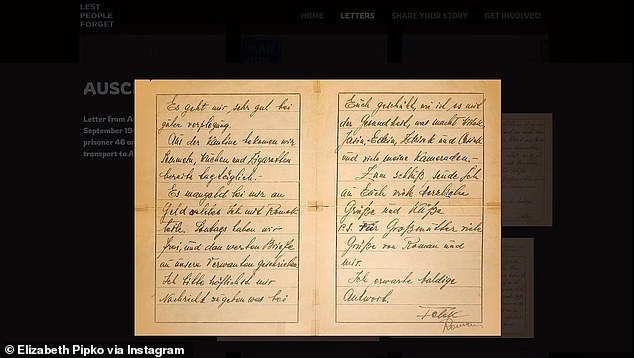 LEST
PEOPLE
FORGET
HOME
LETTERS
SHARE YOUR STORY
GET INVOLVED
AUSC
Letter from Au
September 194
prisoner 46 on
transport to A
Es geht mir sehr gut bei
guter verpflegung.
Aus der Kantine bekomen wir
Semmeln, Kuchen und Zigaretten
bereits tagtäglich.-
Es mangeld bei mir an
Geld welches ich mit Romek
teile. Sontags haben wir
frei, und dan werten Briefe
an unsere Verwanten geschrieben.
Ich bitte höflichst mir
Nachricht zu geben was bei
Euch geschieht, wi ist es mit
der Gesundheit, was macht
Edzin, und
und viele meine Kameraden.-
Zum schluß sende Ich
an Euch viele herzliche
Grüße und Küße
P.S. Für Großmutter viele
Grüße von Roman und
mir.
Ich erwarte baldige
Antwort.
Felek
Roman
© Elizabeth Pipko via Instagram